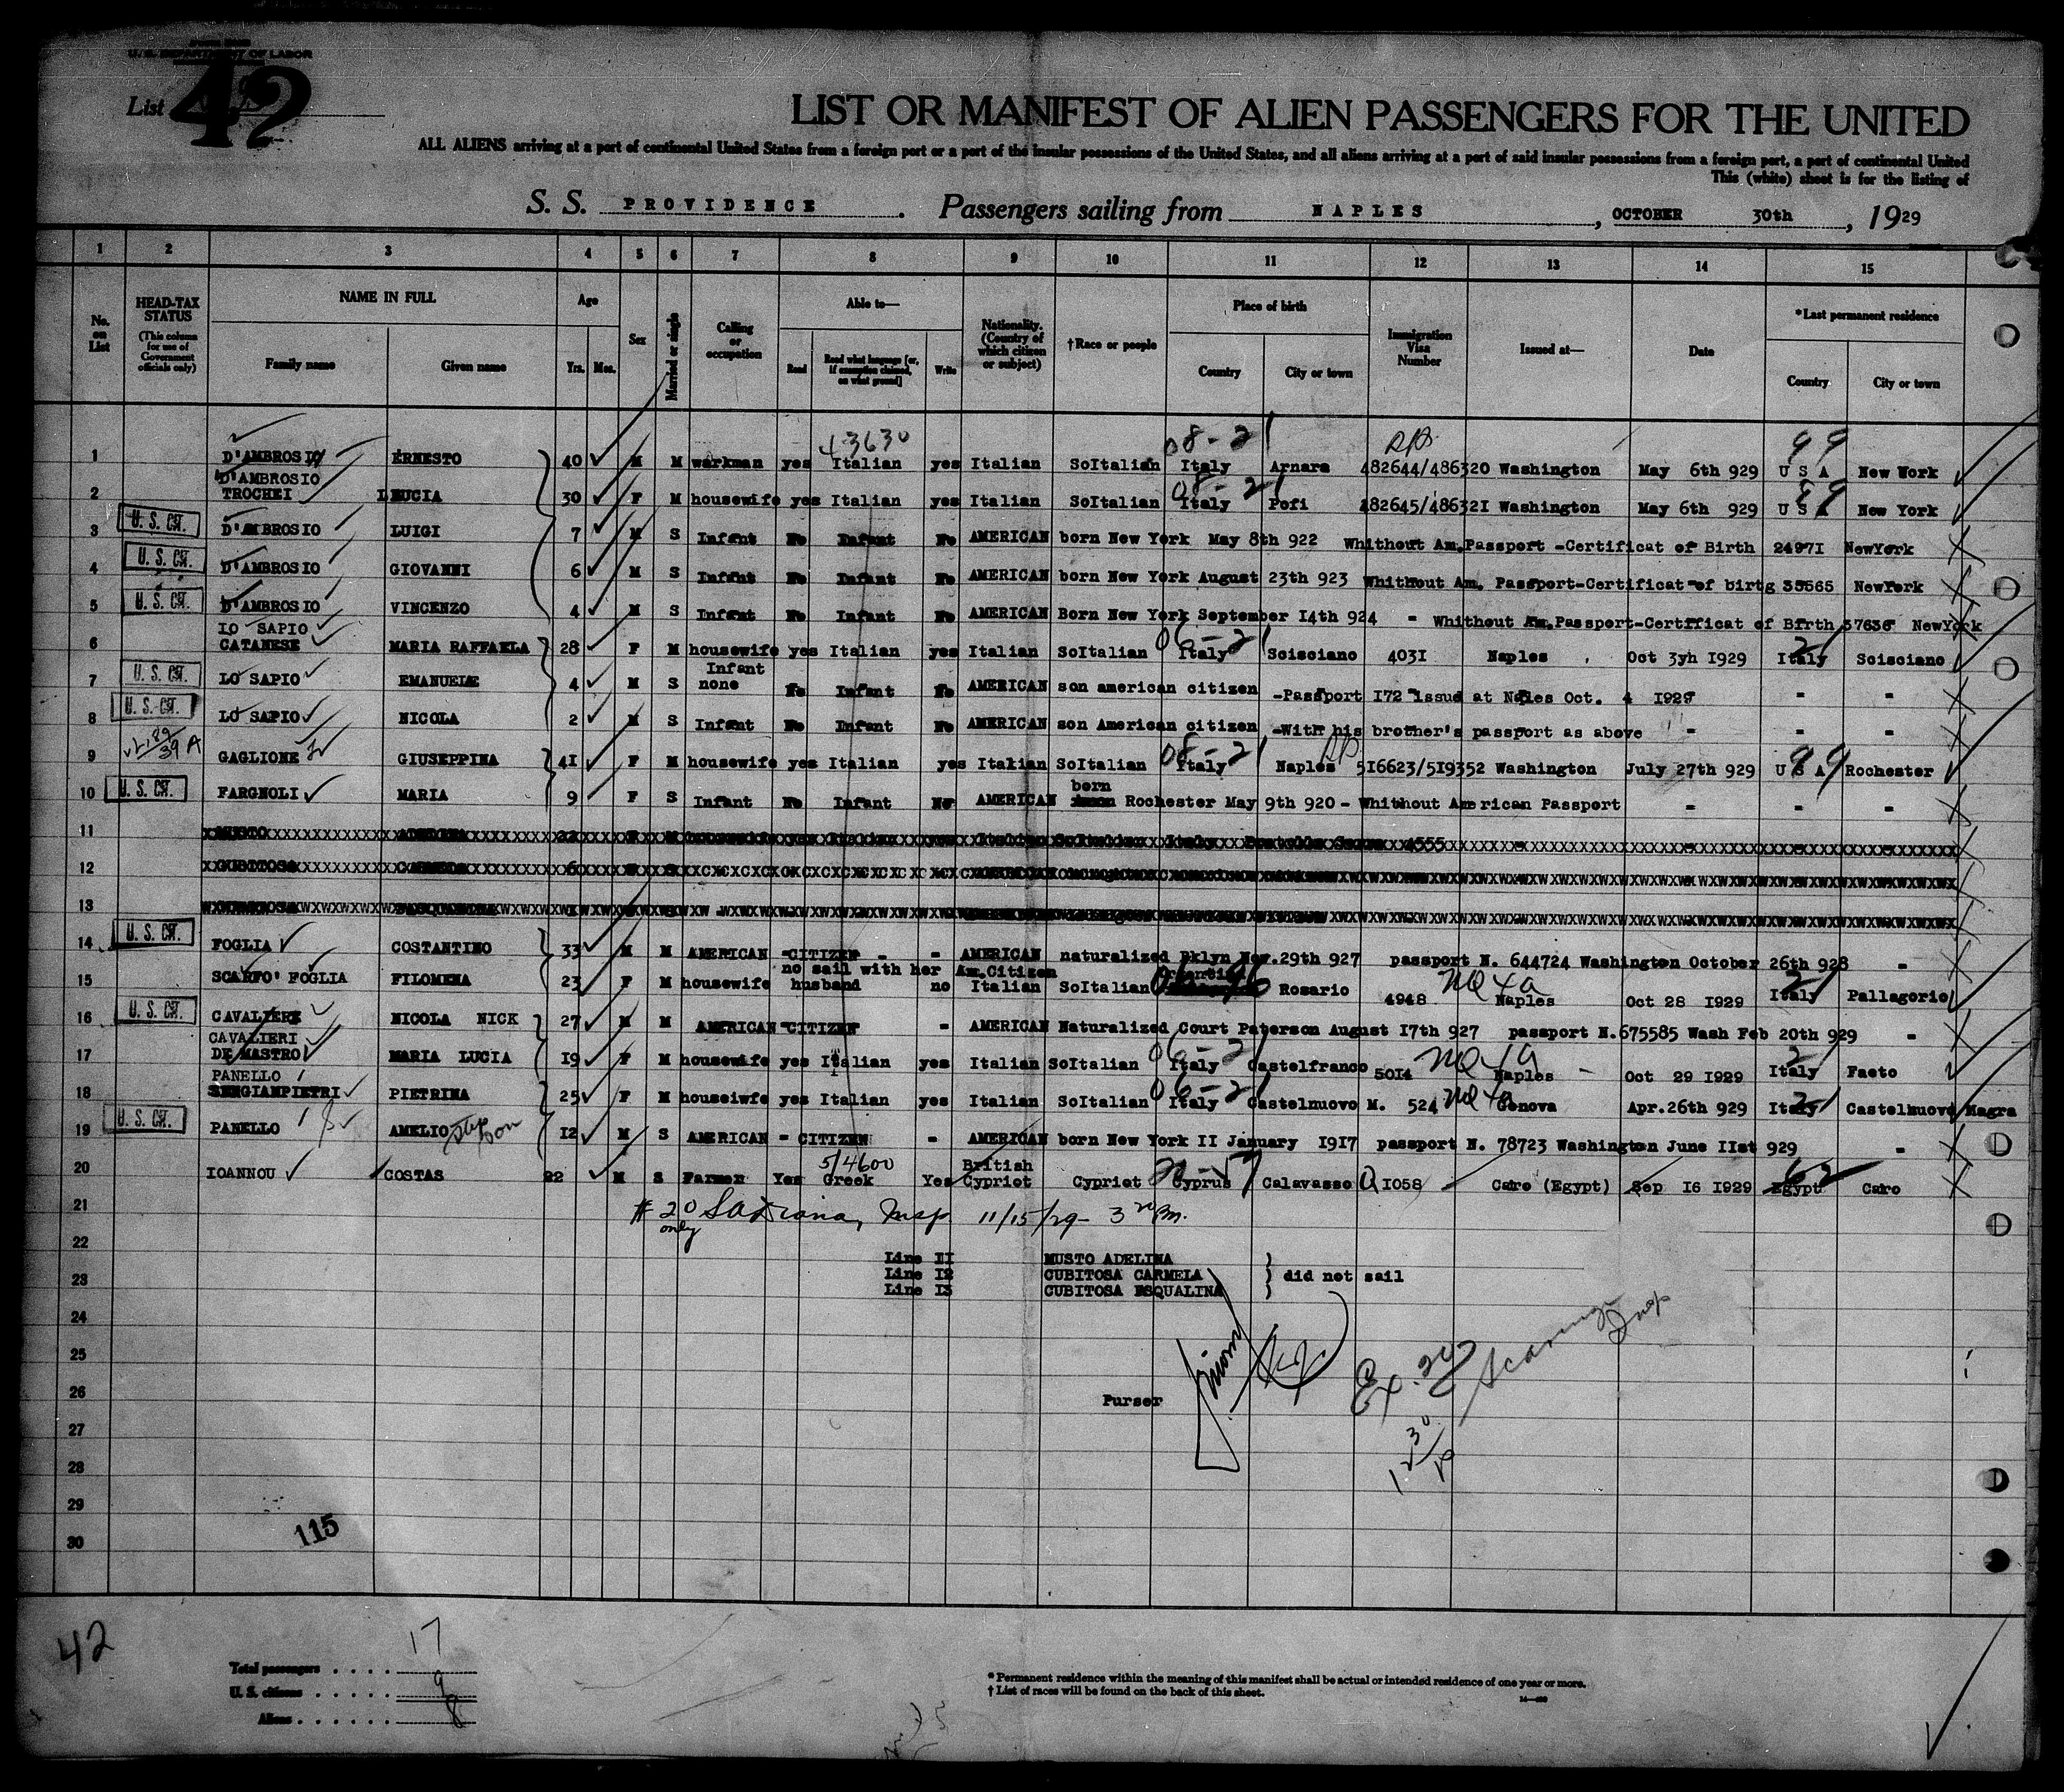 U. S. DEPARTMENT OF LABOR
List 42
LIST OR MANIFEST OF ALIEN PASSENGERS FOR THE UNITED
ALL ALIENS arriving at a port of continental United States from a foreign port or a port of the insular possessions of the United States, and all aliens arriving at a port of said insular possessions from a foreign port, a port of continental United
This (white) sheet is for the listing of
S. S. PROVIDENCE. Passengers sailing from NAPLES, OCTOBER 30th, 1929
1 2 3 4 5 6 7 8 9 10 11 12 13 14 15
No. on List
HEAD-TAX STATUS (This column for use of Government officials only)
NAME IN FULL
Family name Given name
Age
Yrs. Mos.
Sex
Married or single
Calling or occupation
Able to—
Read Read what language [or, if exemption claimed, on what ground] Write
Nationality. (Country of which citizen or subject)
†Race or people
Place of birth
Country City or town
Immigration Visa Number
Issued at—
Date
*Last permanent residence
Country City or town
43630 08-21 99
1 D'AMBROSIO ERNESTO 40 M M workman yes Italian yes Italian SoItalian Italy Arnara 482644/486320 Washington May 6th 929 U S A New York
D'AMBROSIO
2 TROCHEI LEUCIA 30 F M housewife yes Italian yes Italian SoItalian Italy Pofi 482645/486321 Washington May 6th 929 U S A New York
3 U. S. CIT. D'AMBROSIO LUIGI 7 M S Infant No Infant No AMERICAN born New York May 8th 922 Whithout Am.Passport -Certificat of Birth 24971 NewYork
4 U. S. CIT. D'AMBROSIO GIOVANNI 6 M S Infant No Infant No AMERICAN born New York August 23th 923 Whithout Am. Passport-Certificat of birtg 35565 NewYork
5 U. S. CIT. D'AMBROSIO VINCENZO 4 M S Infant No Infant No AMERICAN Born New York September 14th 924 - Whithout Am.Passport-Certificat of Birth 37636 NewYork
LO SAPIO
6 CATANESE MARIA RAFFAELA 28 F M housewife yes Italian yes Italian SoItalian Italy Scisciano 4031 Naples Oct 3yh 1929 Italy Scisciano
Infant
7 U. S. CIT. LO SAPIO EMANUELE 4 M S none No Infant No AMERICAN son american citizen -Passport 172 issued at Naples Oct. 4 1929 - -
8 U. S. CIT. LO SAPIO NICOLA 2 M S Infant No Infant No AMERICAN son American citizen -With his brother's passport as above - -
9 GAGLIONE GIUSEPPINA 41 F M housewife yes Italian yes Italian SoItalian Italy Naples 516623/519352 Washington July 27th 929 U S A Rochester
born
10 U. S. CIT. FARGNOLI MARIA 9 F S Infant No Infant No AMERICAN Rochester May 9th 920 - Whithout American Passport - -
11 MUSTO ADELINA 4555
12
13
14 U. S. CIT. FOGLIA COSTANTINO 33 M M AMERICAN -CITIZEN - - AMERICAN naturalized Bklyn Nov.29th 927 passport N. 644724 Washington October 26th 928 -
no sail with her Am.Citizen
15 SCARFO' FOGLIA FILOMENA 23 F M housewife husband no Italian SoItalian Rosario 4948 Naples Oct 28 1929 Italy Pallagorio
16 U. S. CIT. CAVALIERE NICOLA NICK 27 M M AMERICAN -CITIZEN - AMERICAN Naturalized Court Paterson August 17th 927 passport N.675585 Wash Feb 20th 929 -
CAVALIERI
17 DE MASTRO MARIA LUCIA 19 F M housewife yes Italian yes Italian SoItalian Italy Castelfranco 5014 Naples - Oct 29 1929 Italy Faeto
PANELLO
18 SERGIAMPIETRI PIETRINA 25 F M houseiwfe yes Italian yes Italian SoItalian Italy Castelnuovo M. 524 Genova Apr.26th 929 Italy Castelnuovo Magra
19 U. S. CIT. PANELLO AMELIO step son 12 M S AMERICAN - CITIZEN - AMERICAN born New York II January 1917 passport N. 78723 Washington June IIst 929 -
5/4600 British 62
20 IOANNOU COSTAS 22 M S Farmer Yes Greek Yes Cypriot Cypriot Cyprus Calavasso 1058 Cairo (Egypt) Sep 16 1929 Egypt Cairo
21 #20 only Insp 11/15/29
22
Line II MUSTO ADELINA
23 Line I2 CUBITOSA CARMELA } did not sail
Line I3 CUBITOSA ESQUALINA
24
25
26 Purser
27
28
29
30
115
42
Total passengers . . . . 17
U. S. citizens . . . . . 9
Aliens . . . . . . 8
* Permanent residence within the meaning of this manifest shall be actual or intended residence of one year or more.
† List of races will be found on the back of this sheet.